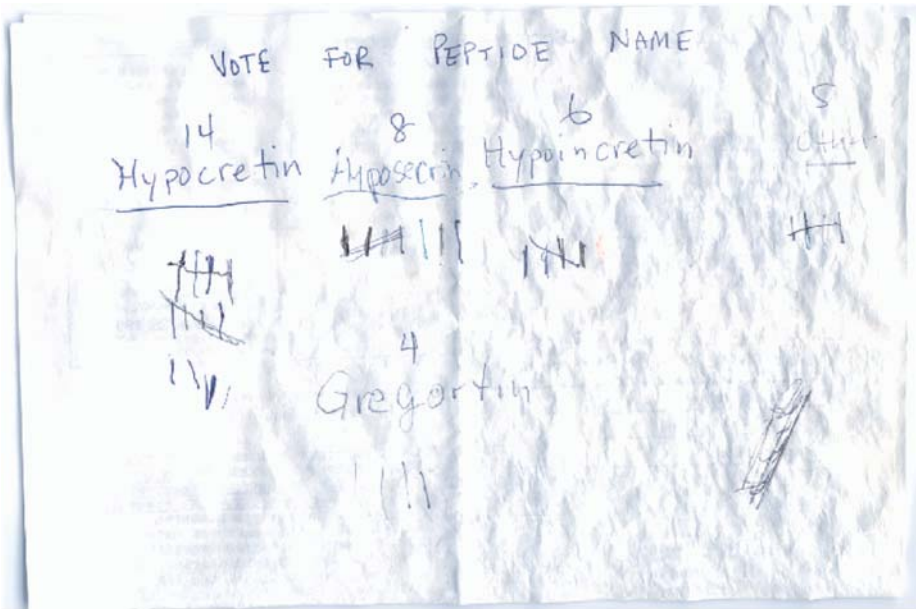 VOTE FOR PEPTIDE NAME
14 8 6 5
Hypocretin Hyposecrin Hypoincretin Other
4
Gregortin